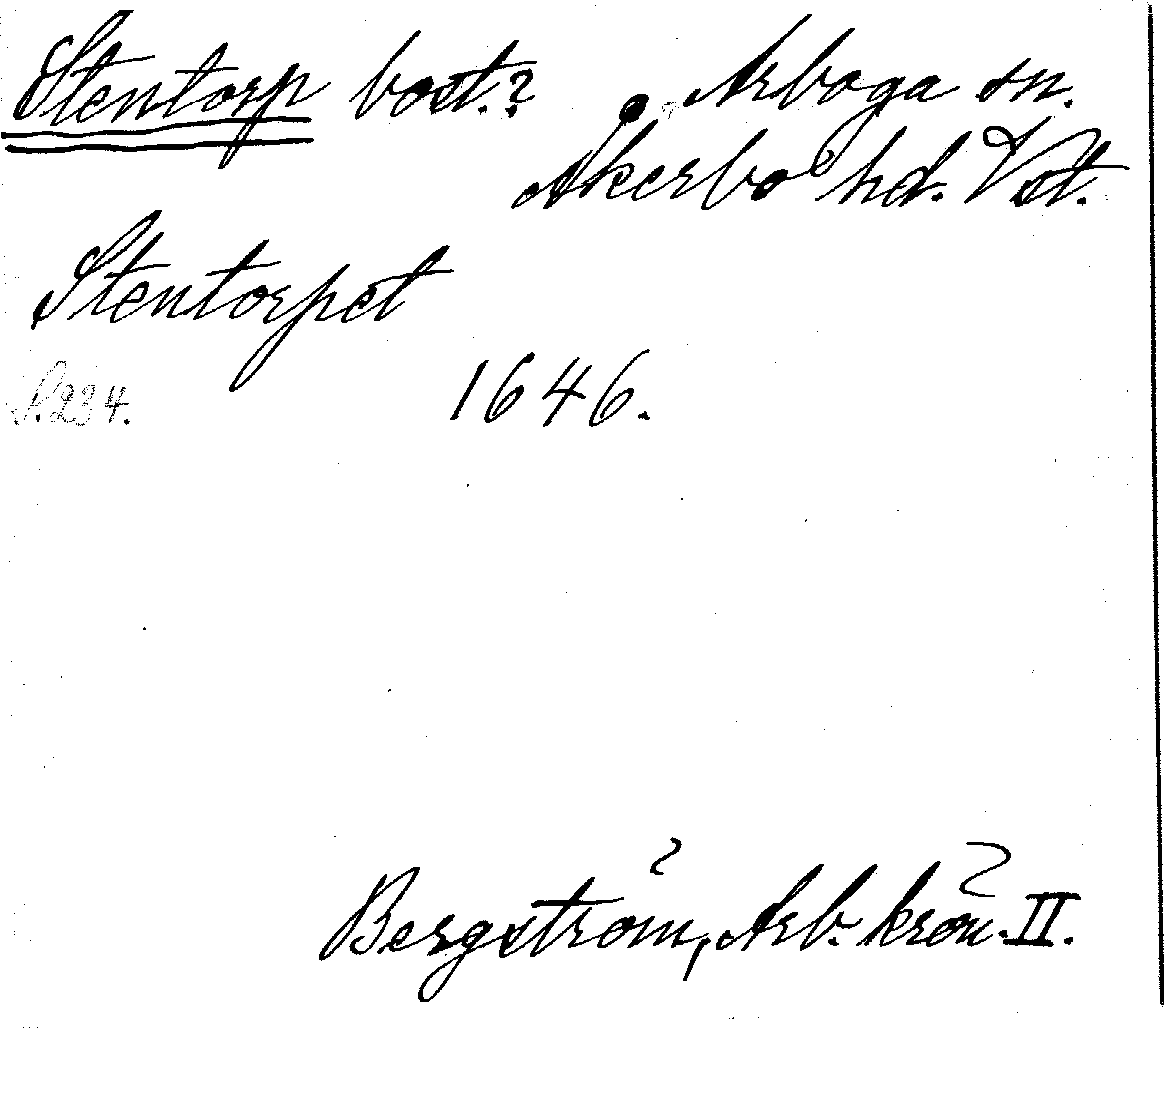 Stentorp bost.? Arboga sn.
Åkerbo hd. Vstm.
Stentorpet
S. 234. 1646.
Bergström, Arb. krön. II.